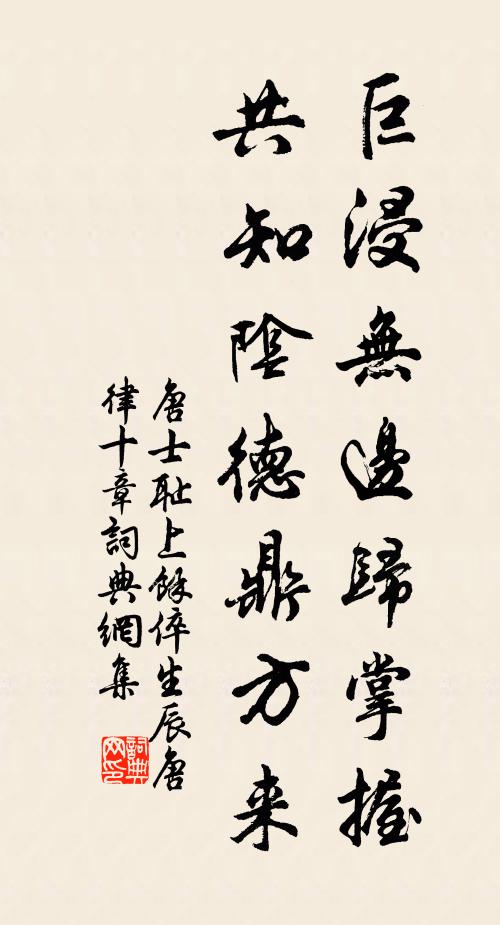 巨浸無邊歸掌握
共知陰德鼎方来
唐士耻上餘倅生辰唐
律十章詞典網集
詞典网印